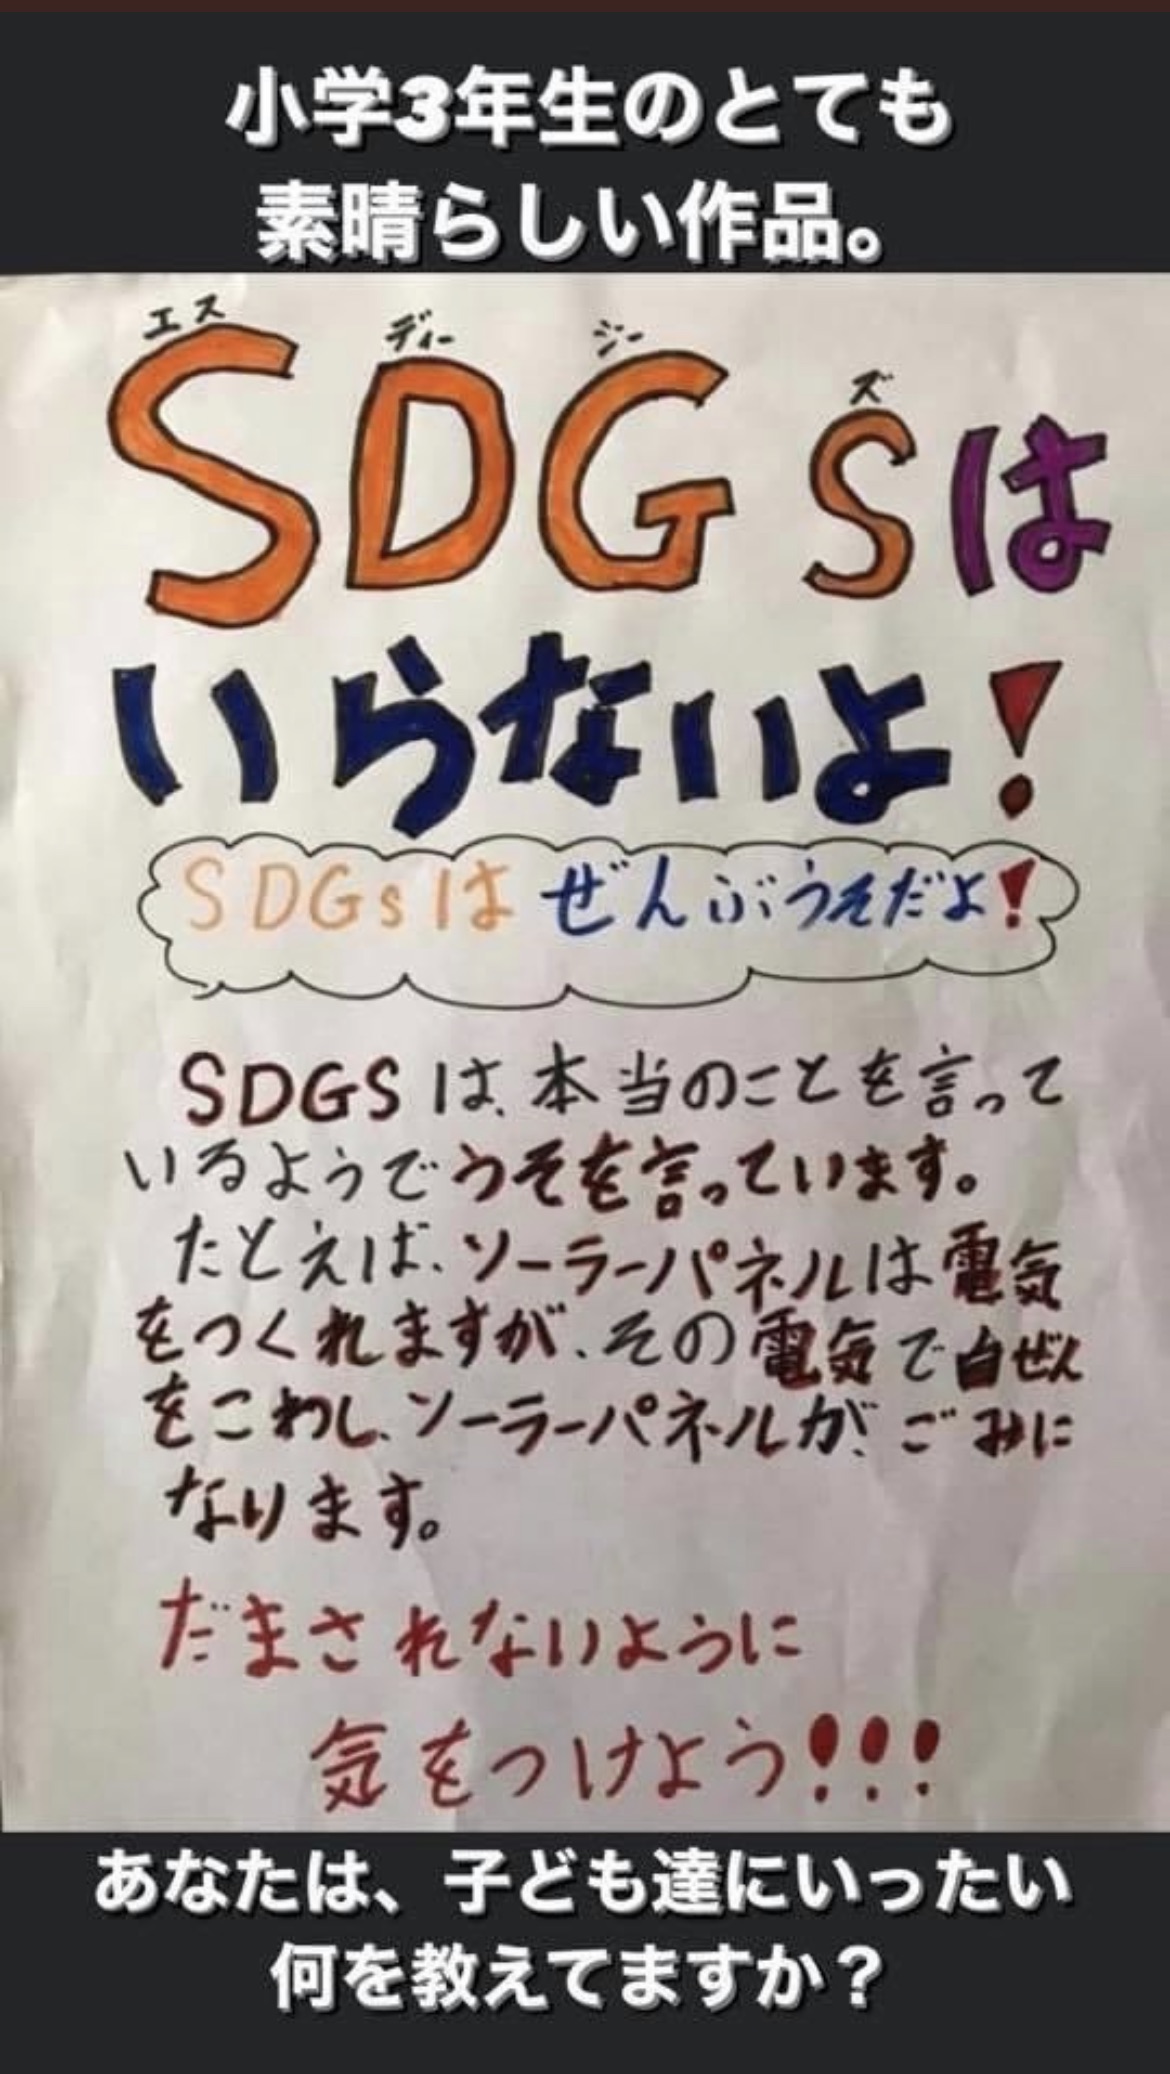 小学3年生のとても
素晴らしい作品。
エス ディー ジー ズ
SDGsは
いらないよ!
SDGsはぜんぶうそだよ!
SDGSは、本当のことを言って
いるようでうそを言っています。
たとえば、ソーラーパネルは電気
をつくれますが、その電気で自ぜん
をこわし、ソーラーパネルが、ごみに
なります。
だまされないように
気をつけよう!!!
あなたは、子ども達にいったい
何を教えてますか？